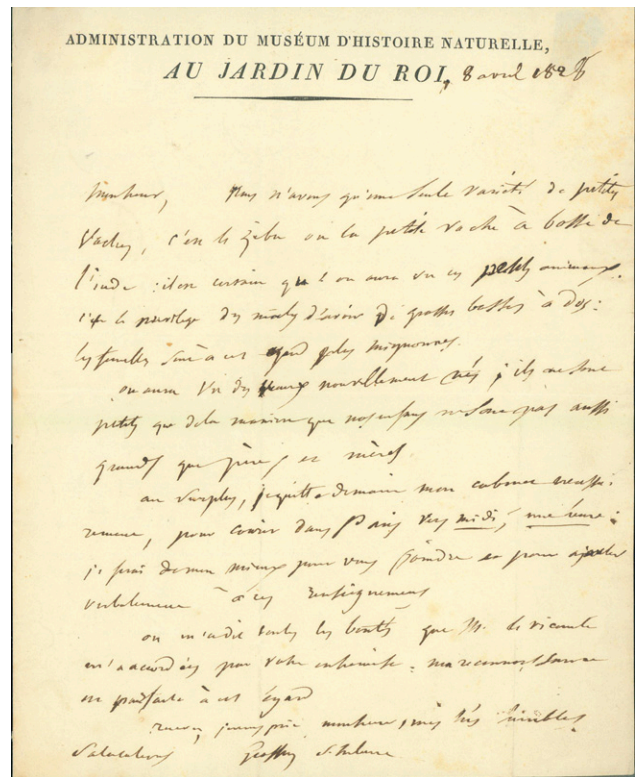 ADMINISTRATION DU MUSÉUM D'HISTOIRE NATURELLE,
AU JARDIN DU ROI, 8 avril 182
Monsieur, Nous n'avons qu'une seule variété de petites
Vaches, c'est le zébu ou la petite vache à bosse de
l'inde : il est certain que l'on aura vu ces petits animaux.
c'est le privilege des mâles d'avoir de grosses bosses à dos :
les femelles sont à cet égard plus mignonnes.
on aura vu des veaux nouvellement nés ; ils ne sont
petits que de la maniere que nos enfans ne sont pas aussi
grands que pères et mères.
au surplus, je quitte demain mon cabinet
pour courir dans Paris vers midi, une heure :
je ferai de mon mieux pour vous joindre et pour ajouter
verbalement à ces renseignemens
on m'a dit toutes les bontés que M. le vicomte
m'a accordées par votre entremise. ma reconnoissance
est parfaite à cet égard
recevez, je vous prie monsieur, mes très humbles
Salutations Geoffroy St hilaire